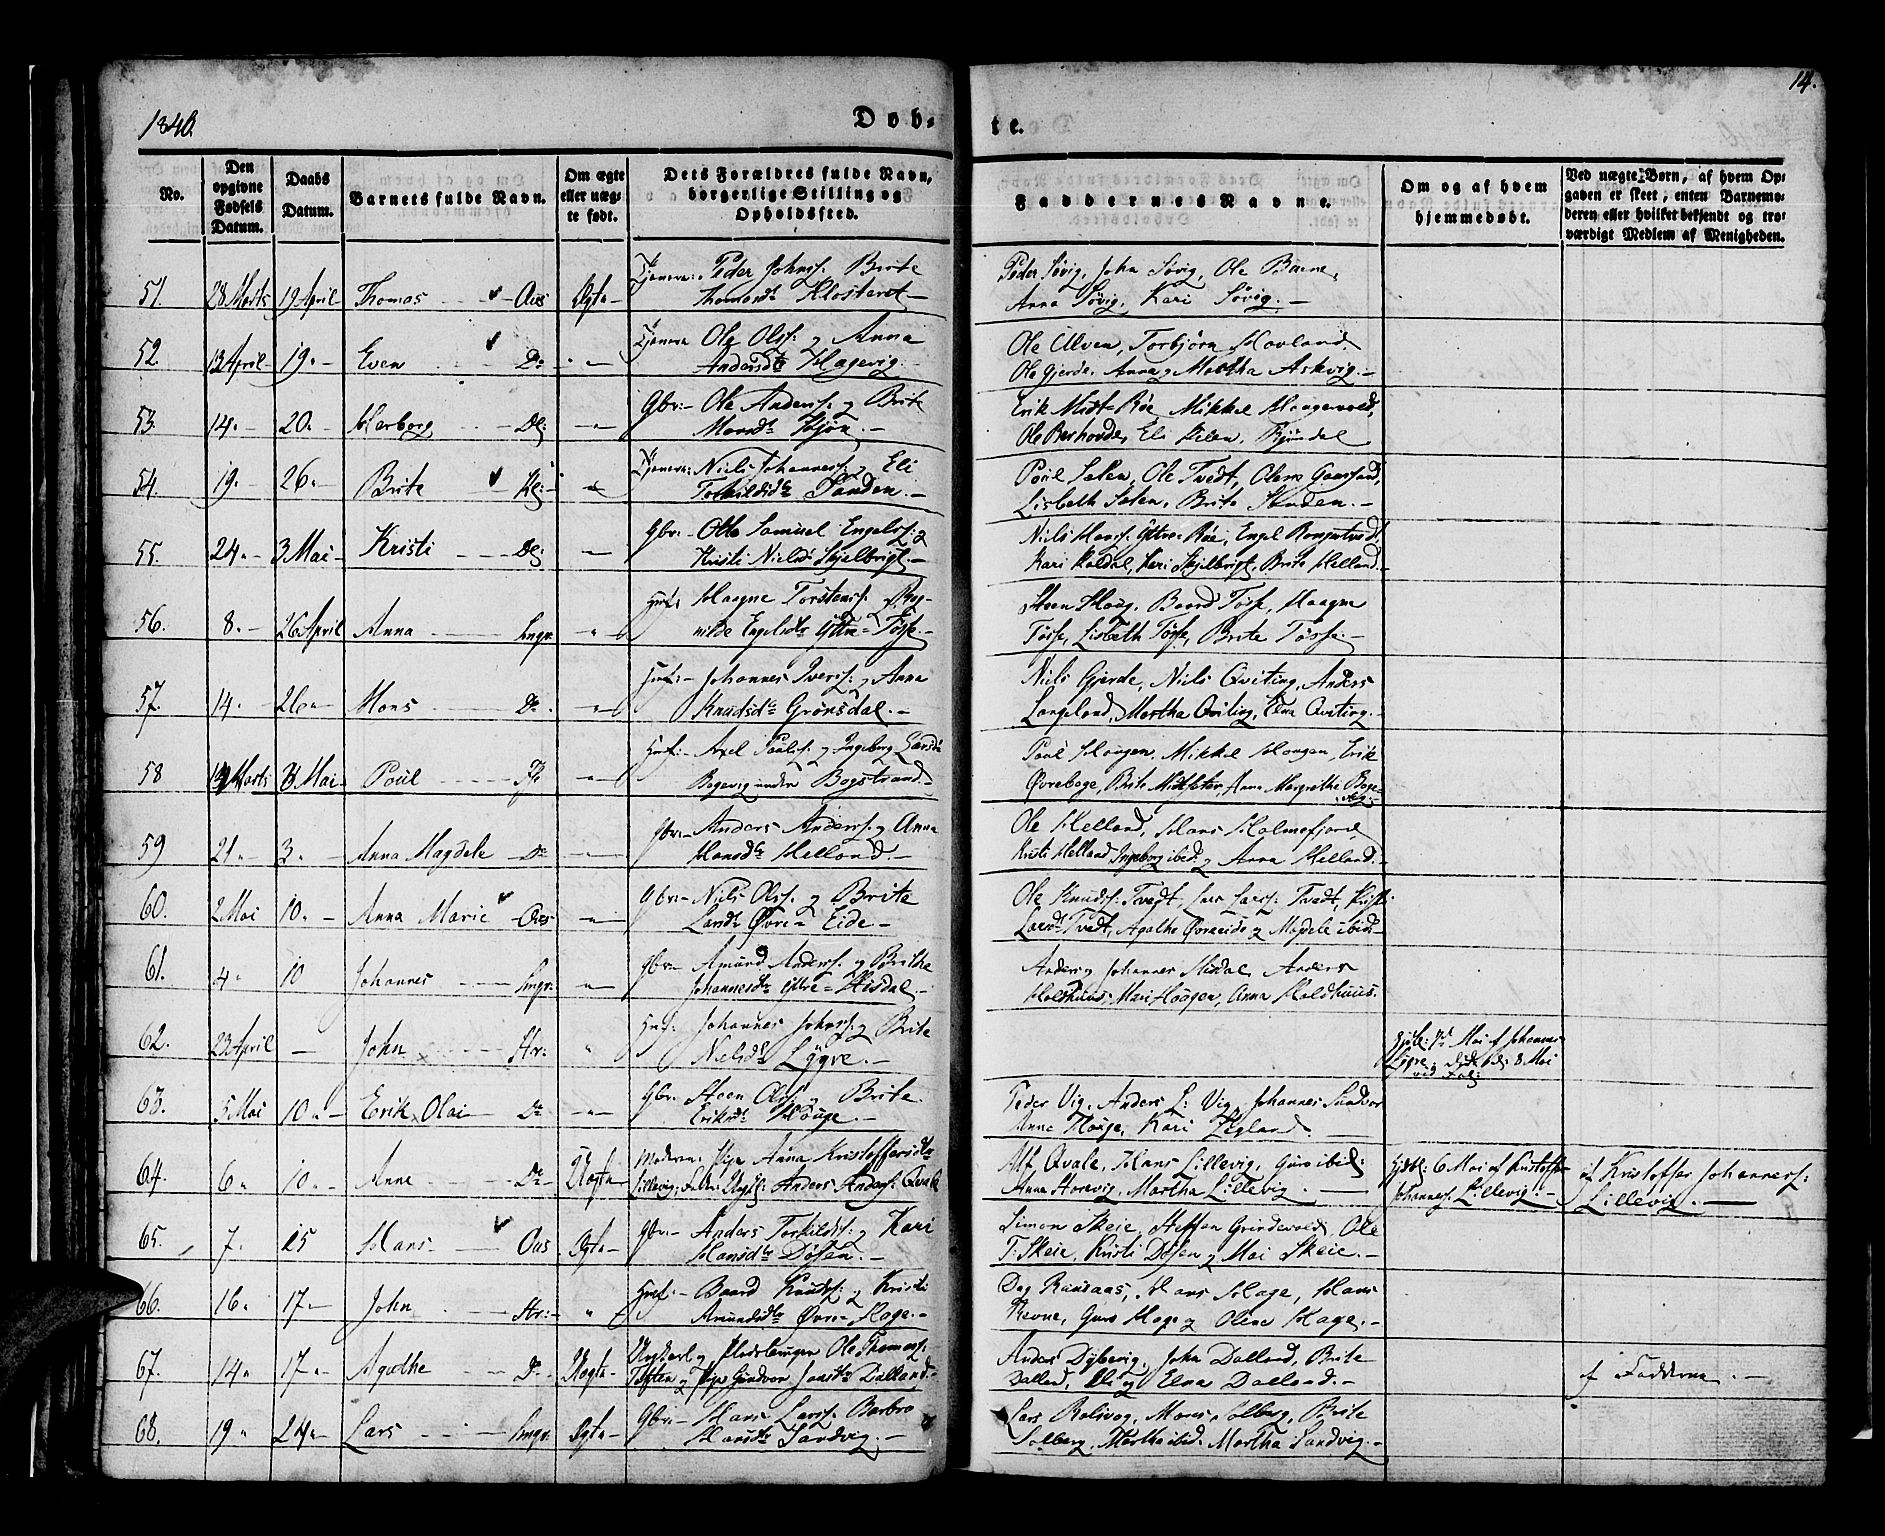 1840.
Døb-
te.
14.
No.
Den opgivne Fødsels Datum.
Daabs Datum.
Barnets fulde Navn.
Om ægte eller uægte født.
Dets Forældres fulde Navn, borgerlige Stilling og Opholdssted.
Faddernes Navne.
Om og af hvem hjemmedøbt.
Ved uægte Børn, af hvem Opgaven er skeet, enten Barnemoderen eller hvilket bekjendt og troværdigt Medlem af Menigheden.
51. 28 Marts 19 April Thomas Ous Ægte Peder Johns: Brite
Thomasdr Klosteret
Peder Søvig, John Søvig, Ole Barne,
Anna Søvig, Kari Søvig.
52 13 April 19. Even Do: Ole Ols: og Anna
Andersdr Hagevig.
Ole Ulven, Torbjørn Hovland
Ole Gjerde, Anna og Martha Askvig.
53. 14. 20. Herborg Gbr: Ole Anders: og Brite
Monsdr
Erik Midt-Røe, Mikkel
Ole Berhovde, Eli
54. 19. 26. Brite Niels Johanness: og Eli
Torkildsdr Sanden.
Poül Salen, Ole Tvedt,
Lisbeth Salen, Brite
55. 24. 3 Mai Kristi Gbr: Otto Samuel Engels: og
Kristi Nielsdr Skjelbrigt
Niels Hans: Yttre-Røe, Engel
Kari Kaldal, Kari Skjelbrigt, Brite Helland
56. 8. 26 April Anna Haagne Torstens: og Rag-
nilde Engelsdr Yttre-Tøsse
Steen Haug, Baard Tøsse, Haagne
Tøsse, Lisbeth Tøsse, Brite Tøsse.
57. 14. 26. Mons Do. Johannes Ivers: og Anna
Knudsdr Grønsdal.
Niels Gjerde, Niels Qviting, Anders
Langeland, Martha Qviting, Elna Qviting.
58 Marts 3 Mai Poül Axel Poüls: og Ingeborg
Bogevig under Bogstrand
Poül Haagen, Mikkel Haagen, Erik
Øvrebøge, Brite Midtsæter, Anna Margrethe Boge-
vig.
59 21. 3. Anna Magdele Do Gbr: Anders Anders: og Anna
Hansdr Helland.
Ole Helland, Hans Holmefjord
Kristi Helland, Ingeborg ibid: og Anna Helland.
60. 2 Mai 10. Anna Marie Ous Gbr: Niels Ols: og Brite
Larsdr Øvre-Eide.
Ole Knuds: Tvedt, Lars Lars: Tvedt, Kristi
Larsdr Tvedt, Agathe Øvreeide og Magdele ibid:
61. 4. 10 Johannes Gbr: Amund Anders: og Brithe
Johannesdr Yttre-Hisdal.
Anders og Johannes Hisdal, Anders
Holdhuus, Mari Haagen, Anna Holdhuus.
62. 23 April John Str: Johannes Johns: og Brite
Nielsdr Lygre.
Mai af Johannes
Lygre, 8 Mai
63. 5 Mai 10. Erik Olai Do Gbr: Steen Ols: Brite
Eriksdr Hauge.
Peder Vig, Anders L: Vig, Johannes Sandvor
Anna Hauge, Kari Vigland.
64. 6. 10. Anne Do Uægte Moderen: Pige Anna Kristoffersdr
Lillevig, Fader: Ungk: Anders Anders: Qvale
Alf Qvale, Hans Lillevig, Guro ibid:
Anna Horevig, Martha Lillevig.
Hjdbt: 6 Mai af Kristoffer
Johanness: Lillevig.
af Kristoffer Johanness:
Lillevig.
65. 7. 25 Hans Ous Ægte Gbr: Anders Torkilds: og Kari
Hansdr Døsen.
Simon Skeie, Steffen Grindevold, Ole
T: Skeie, Kristi Døsen og Mai Skeie.
66. 16. 17. John Str: Baard Knuds: og Kristi
Amundsdr Øvre-Hage.
Dag Raunaas, Hans Hage, Hans
Revne, Guro Hage og Oline Hage.
67. 14. 17. Agathe Do. Uægte Ungkarl og Ole Thomas:
Tøften og Pige Gundvor Jonsdr Dalland.
Anders Dybevig, John Dalland, Brite
Dalland, Eli og Elna Dalland.
af Fadderne.
68. 19. 24. Lars Ægte Gbr: Hans Lars: Barbro
Hansdr Sandvig.
Lars Bolivog, Mons Solberg, Brite
Solberg, Martha ibid: Martha Sandvig.